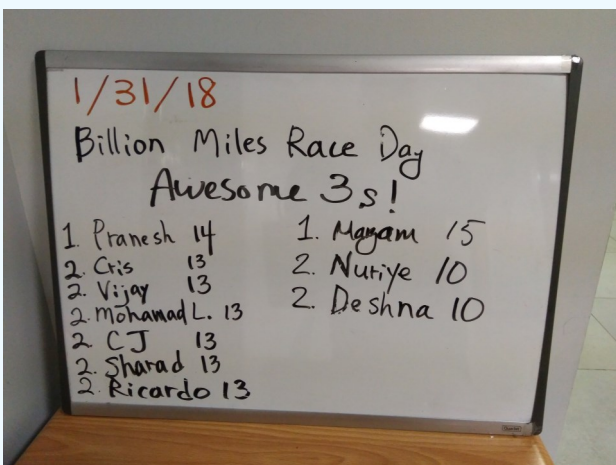 1/31/18
Billion Miles Race Day
Awesome 3s!
1. Pranesh 14
2. Cris 13
2. Vijay 13
2. Mohamad L. 13
2 CJ 13
2. Sharad 13
2. Ricardo 13
1. Mayam 15
2. Nuriye 10
2. Deshna 10